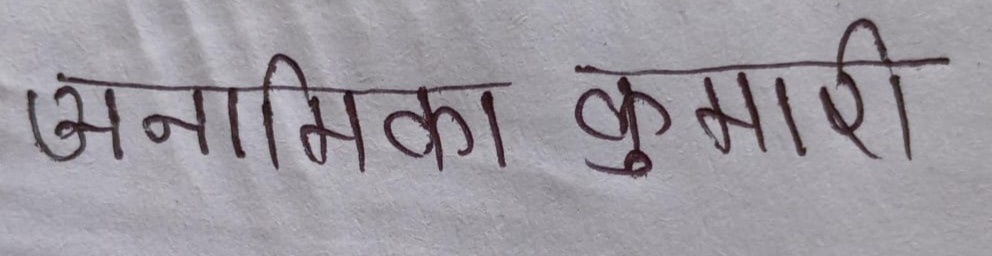 अनामिका कुमारी